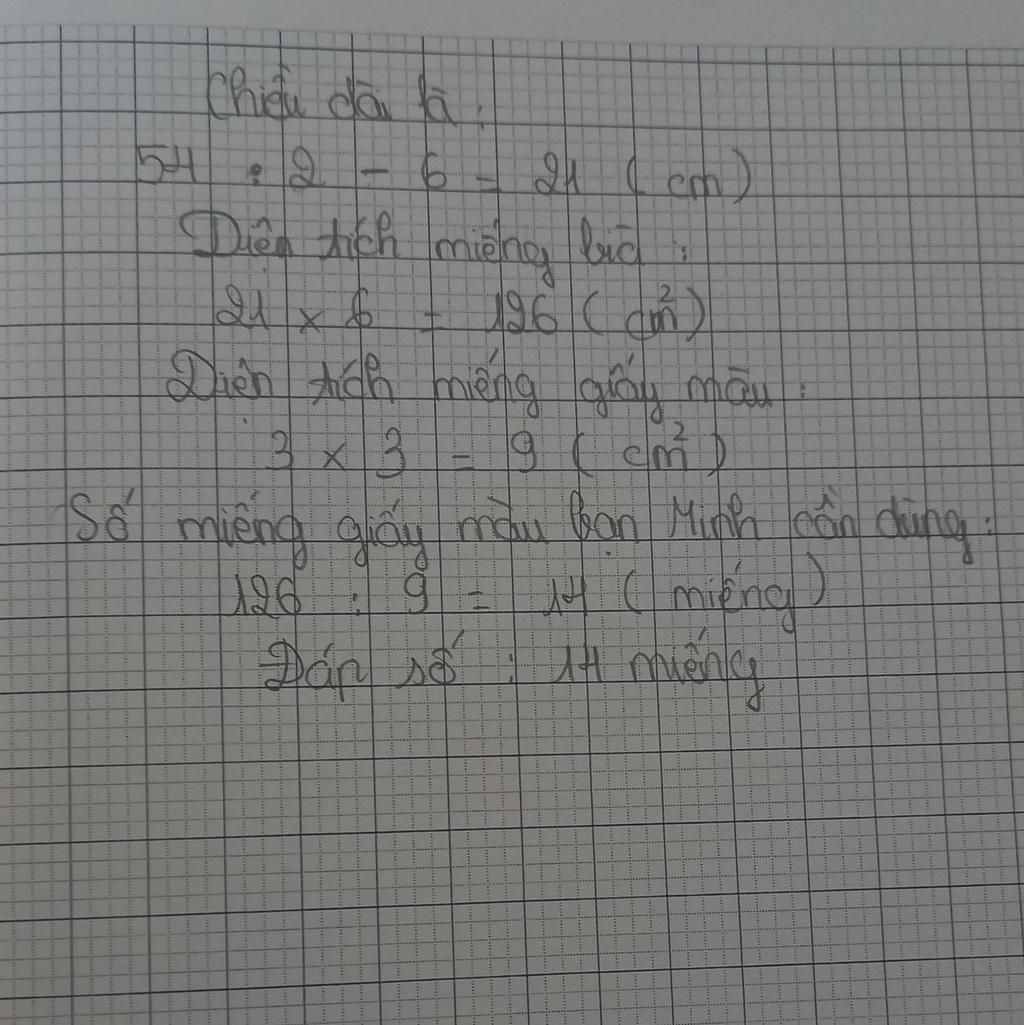 Chiều dài là:
54 : 2 - 6 = 21 (cm)
Diện tích miếng bìa :
21 x 6 = 126 (cm²)
Diện tích miếng giấy màu :
3 x 3 = 9 (cm²)
Số miếng giấy màu bạn Minh cần dùng:
126 : 9 = 14 (miếng)
Đáp số : 14 miếng